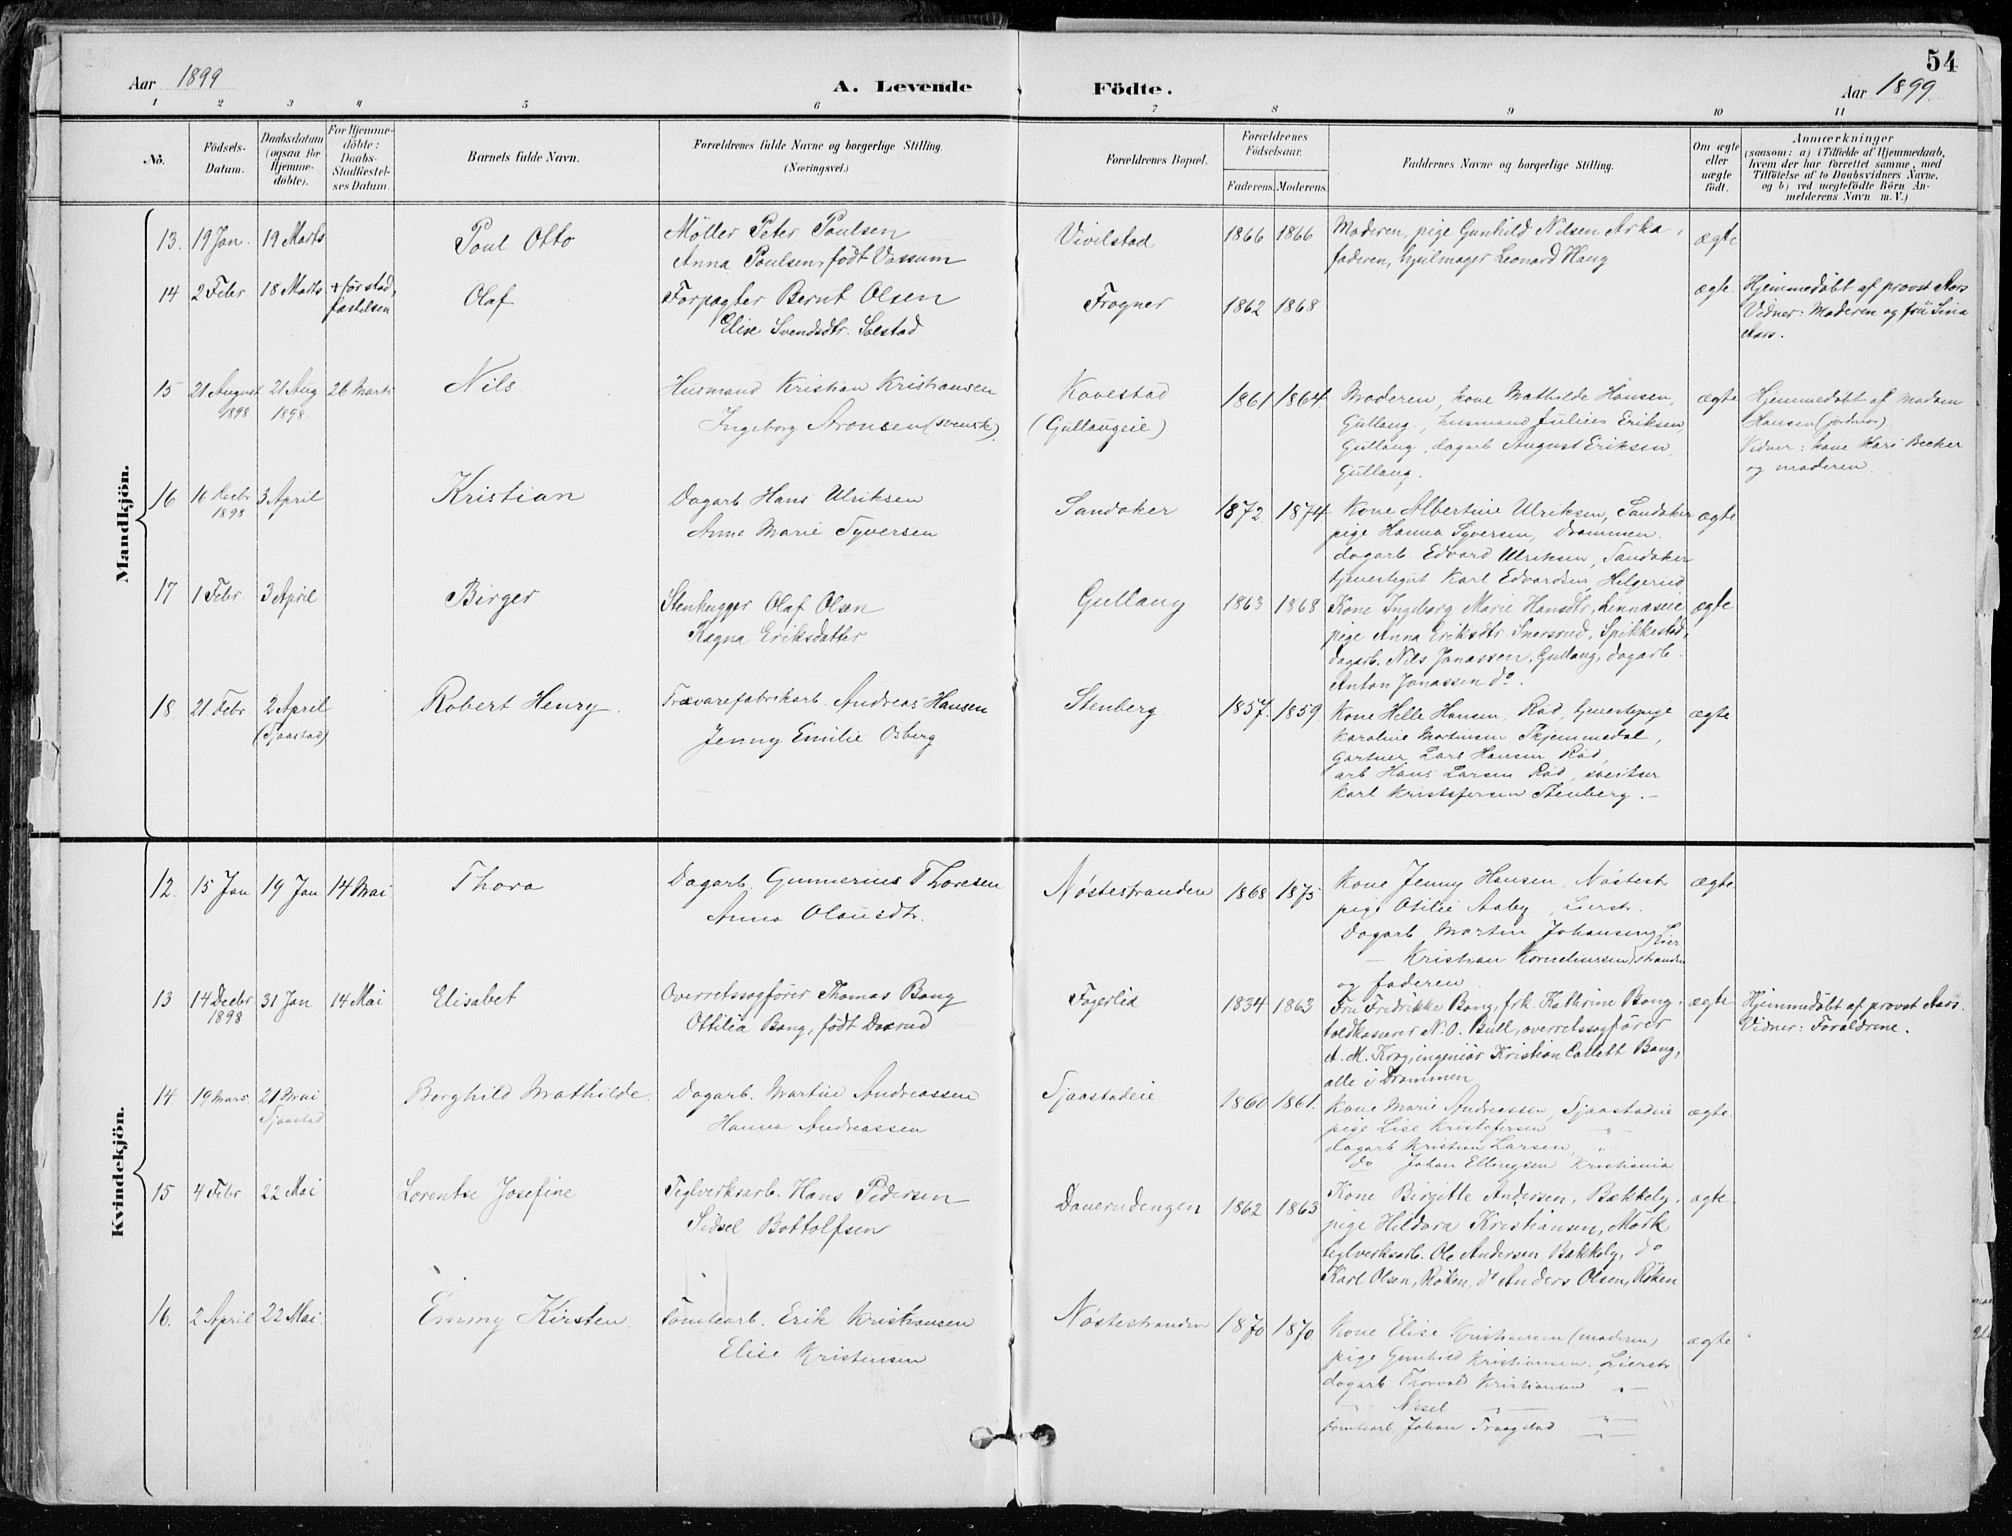 54
Aar 1899
A. Levende
Födte.
Aar 1899.
1 2 3 4 5 6 7 8 9 10 11
No.
Födsels-
Datum.
Daabsdatum
(ogsaa for
Hjemme-
döbte).
For Hjemme-
döbte:
Daabs-
Stadfæstel-
ses Datum.
Barnets fulde Navn.
Forældrenes fulde Navne og borgerlige Stilling.
(Næringsvei.)
Forældrenes Bopæl.
Forældrenes
Födselsaar.
Faderens. Moderens.
Faddernes Navne og borgerlige Stilling.
Om ægte
eller
uægte
födt.
Anmærkninger
(saasom: a) i Tilfælde af Hjemmedaab,
hvem der har forrettet samme, med
Tilföielse af to Daabsvidners Navne,
og b) ved uægtefödte Börn An-
melderens Navn m. V.)
Mandkjön.
13. 19 Jan. 19 Marts Poul Otto
Möller Peter Poulsen
Anna Poulsen, født Vossum
Vivelstad 1866 1866
Moderen, pige Gunhild Nilsen Arka,
faderen, hjulmager Leonard Haug
ægte
14 2 Febr. 18 Marts + før stad-
fæstelsen
Olaf
Forpagter Bernt Olsen
Elise Svendsdtr. Solstad
Frogner 1862 1868
ægte.
Hjemmedøbt af provst Aars
Vidner: Moderen og frü Lina
Aars.
15 21 August
1898
21 Aug
1898
26 Marts
Nils
Husmand Kristian Kristiansen
Ingeborg Aronsen (svensk).
Kovestad
(Gullaugeie)
1861 1864
Moderen, kone Mathilde Hansen,
Gullaug, husmand Julius Eriksen,
Gullaug, dagarb August Eriksen,
Gullaug.
ægte
Hjemmedøbt af madam
Hansen (jordmor)
Vidner: kone Kari Becker
og moderen.
16 16 Decbr
1898
3 April
Kristian
Dagarb Hans Ulriksen
Anne Marie Syversen
Sandaker 1872. 1874
Kone Albertine Ulriksen, Sandaker
pige Hanna Syversen, Drammen.
dagarb. Edvard Ulriksen, Sandaker
tjenestegut Karl Edvardsen, Helgerud
ægte
17 1 Febr 3 April
Birger
Stenhugger Olaf Olsen
Ragna Eriksdatter
Gullaug 1863 1868
Kone Ingeborg Marie Hansdtr, Linnæseie
pige Anna Eriksdtr Snarsrud, Spikkestad,
dagarb. Nils Jonassen, Gullaug, dagarb.
Anton Jonassen do.
ægte
18. 21 Febr. 2 April
(Sjaastad)
Robert Henry.
Trævarefabrikarb. Andreas Hansen
Jenny Emilie Osberg
Stenberg. 1857. 1859
Kone Helle Hansen, Rød, tjenestepige
Karoline Martinsen Skjemmedal,
gartner Lars Hansen Rød,
arb Hans Larsen Rød, sveitser
Karl Kristofersen Stenberg. –
ægte
Kvindekjön.
12. 15 Jan 19 Jan 14 Mai
Thora
Dagarb. Gunnerius Thoresen
Anna Olausdtr.
Nøstestranden 1868 1875
Kone Jenny Hansen, Nøstestr
pige Otilie Aaby, Lierstr.
Dagarb. Martin Johansen, Lier
— Kristian Korneliussen stranden
og faderen
ægte
13 14 Decbr
1898
31 Jan 14 Mai
Elisabet
Overretssagfører Thomas Bang
Ottilia Bang, født Dosrud
Fagerlid 1834 1863
Fru Fredrikke Bang, frk. Kathrine Bang,
toldkasserer N. O. Bull, overretssagfører
A. M. Krog, ingeniør Kristian Collett Bang,
alle i Drammen
ægte
Hjemmedøbt af provst Aars.
Vidner: Forældrene.
14. 19 Mars 21 Mai
Sjaastad
Borghild Mathilde.
Dagarb. Martin Andreassen
Hanna Andreassen
Sjaastadeie 1860 1861.
Kone Marie Andreassen, Sjaastadeie
pige Lise Kristofersen — " —
dagarb Kristian Larsen, "
do Johan Ellingsen Kristiania
ægte
15 4 Febr 22 Mai
Lorentse Josefine
Teglverksarb. Hans Pedersen
Sidsel Bottolfsen
Dauerudengen 1862 1863
Kone Birgitte Andersen, Bækkely,
pige Hildora Kristiansen, Mörk
teglverksarb. Ole Andersen, Bækkely, do
Karl Olsen, Røken, do Anders Olsen, Røken
ægte
16. 2 April 22 Mai.
Emmy Kirsten.
Tomtearb. Erik Kristiansen
Elise Kristensen
Nøstestranden 1870 1870
Kone Elise Kristiansen (moderen)
pige Gunhild Kristiansen, Lierstr
dagarb Thorvald Kristiansen "
— Nisel —
tomtearb. Johan Traagstad — " —
ægte